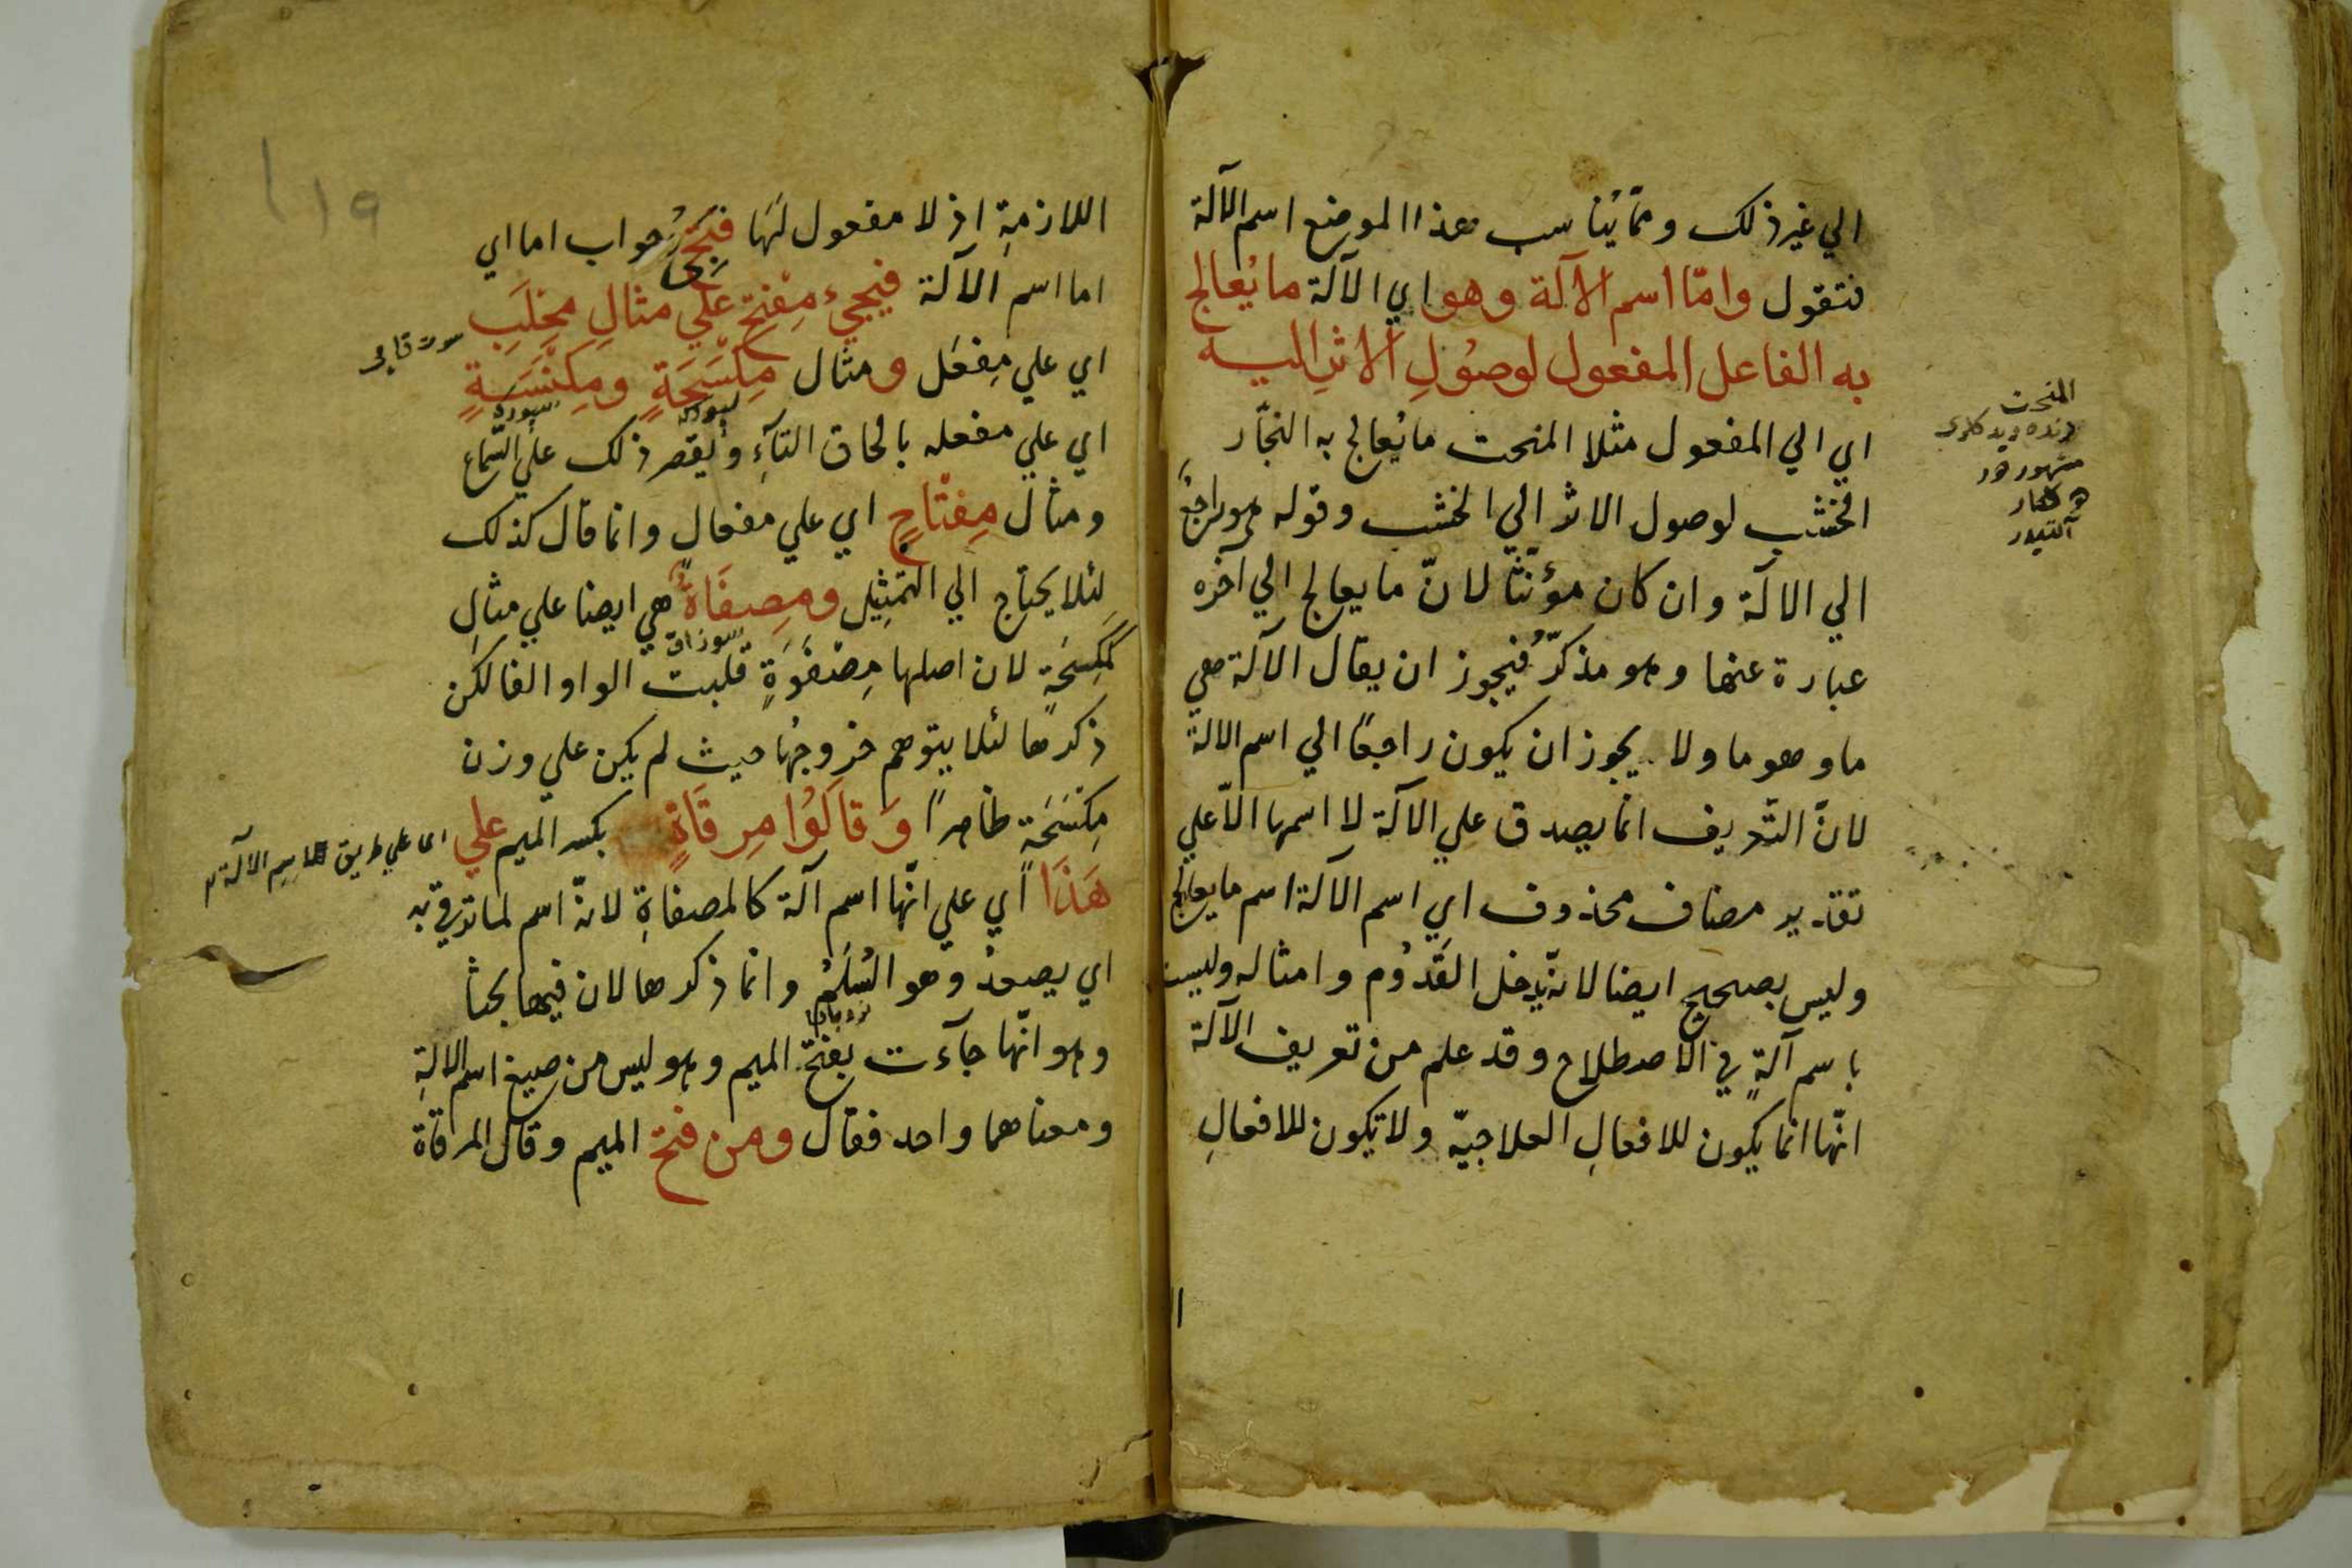 الي غير ذلك وممّا يُناسب هذا الموضع اسم الآلة
فنقول وامّا اسم الآلة وهو اي الآلة ما يُعالج
به الفاعل المفعول لوصُولِ الاثرِ اليه
اي الي المفعول مثلا المنحت ما يُعالج به النجّار
الخشب لوصول الاثر الي الخشب وقوله هو راجعٌ
الي الالة وان كان مؤنّثًا لانّ ما يعالج الي آخره
عبارة عنها وهو مذكّرٌ فيجوز ان يقال الآلة هي
ما وهو ما ولا يجوز ان يكون راجعًا الي اسم الالة
لانّ التّعريف انما يصدق علي الآلة لا اسمها الّا علي
تقدير مضاف محذوف اي اسم الآلة اسم ما يعالج
وليس بصحيح ايضا لانّه يدخل القَدُوم وامثاله وليست
باسم آلةٍ في الاصطلاح وقد علم من تعريف الآلة
انّها انما يكون للافعالِ العلاجيّة ولا تكون للافعالِ
المنحت
اللازمةِ اذ لا مفعول لَهَا فيجئ جواب اما اي
اما اسم الآلة فيجيء مِفتح علي مثالِ مِحْلَبٍ
اي علي مِفعَل ومثال مِكْسَحَةٍ ومِكنَسَةٍ
اي علي مفعله بالحاق التآءِ ويقصر ذلك علي السّماع
ومثال مِفتَاحٍ اي علي مفعالٍ وانما قال كذلك
لِئلا يحتاج الي التمثيل ومِصفَاةٌ هي ايضا علي مثالِ
مكسَحَةٍ لان اصلها مِصْفَوَةٍ قلبت الواو الفا لكن
ذكرها لئلا يتوهم خروجُها حيث لم يكن علي وزن
مِكسَحَةٍ ظاهرًا وَقَالُوا مِرقَاةٍ بكسر الميم علي
اي علي طريق اسم الآلة
هَذَا اي علي انّها اسم آلة كالمصفاةِ لانّه اسم لما يرقي به
اي يصعدُ وهو السُلَّمُ وانما ذكرها لان فيها بحثا
وهو انّها جآءت بفتح الميم وهو ليس من صيغ اسم الالةِ
ومعناهما واحد فقال ومن فتح الميم وقال المرقاة
١١٩